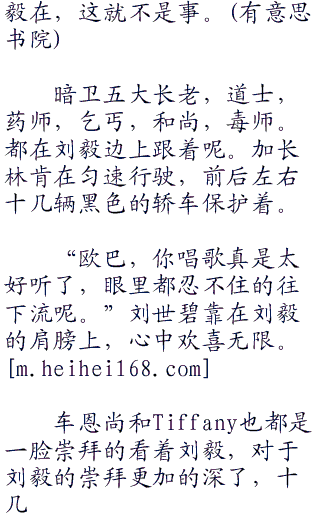 毅在，这就不是事。(有意思
书院)
暗卫五大长老，道士，
药师，乞丐，和尚，毒师。
都在刘毅边上跟着呢。加长
林肯在匀速行驶，前后左右
十几辆黑色的轿车保护着。
“欧巴，你唱歌真是太
好听了，眼里都忍不住的往
下流呢。”刘世碧靠在刘毅
的肩膀上，心中欢喜无限。
[m.heihei168.com]
车恩尚和Tiffany也都是
一脸崇拜的看着刘毅，对于
刘毅的崇拜更加的深了，十
几